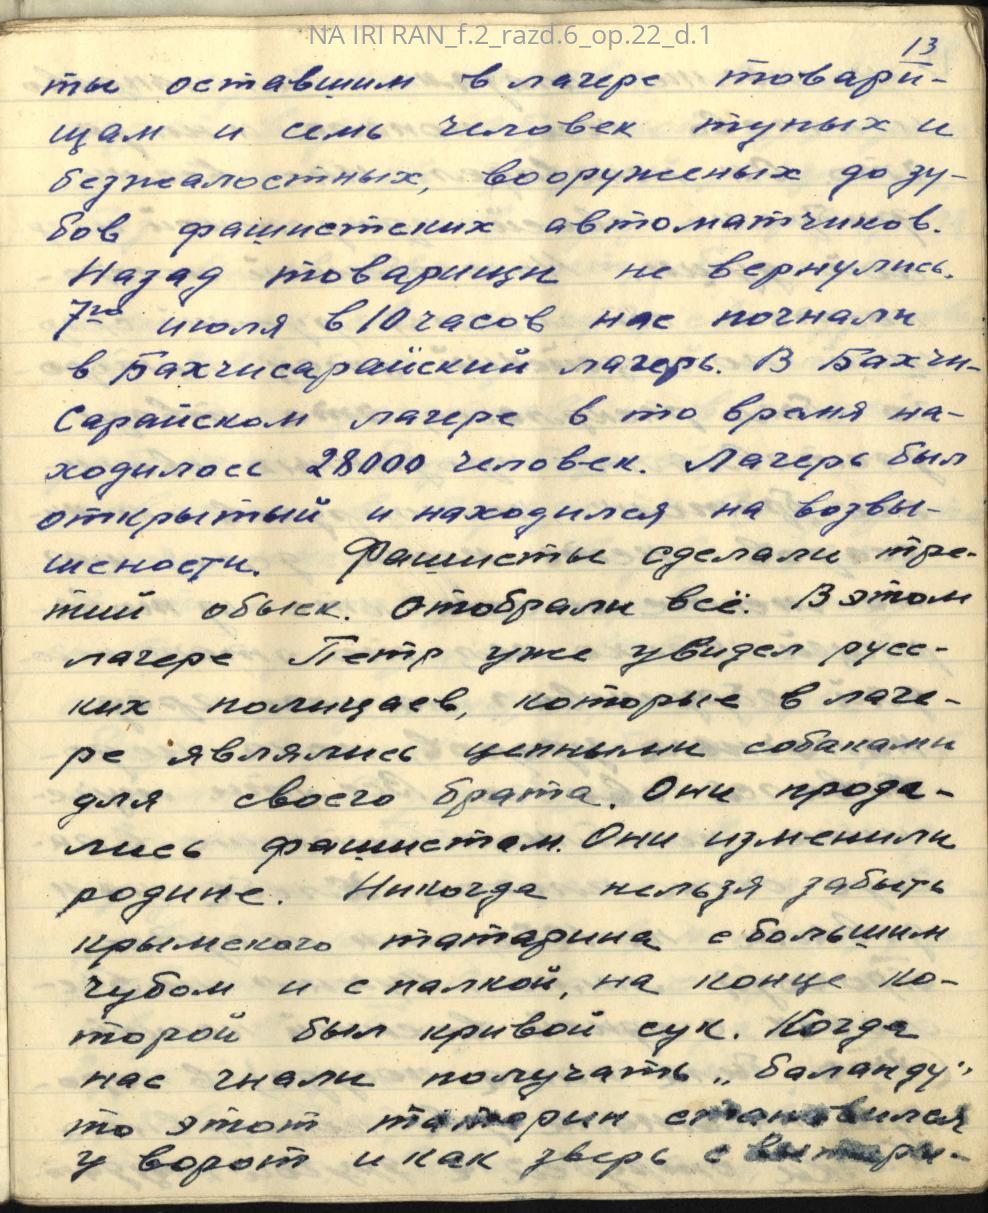 NA IRI RAN_f.2_razd.6_op.22_d.1
13
ты оставшим в лагере товари-
щам и семь человек тупых и
безжалостных, вооруженых до зу-
бов фашистских автоматчиков.
Назад товарищи не вернулись.
7го июля в 10 часов нас погнали
в Бахчисарайский лагерь. В Бахчи-
Сарайском лагере в то время на-
ходилось 28000 человек. Лагерь был
открытый и находился на возвы-
шености. Фашисты сделали тре-
тий обыск. Отобрали всё. В этом
лагере Петр уже увидел русс-
ких полицаев, которые в лаге-
ре являлись цепными собаками
для своего брата. Они прода-
лись фашистам. Они изменили
родине. Никогда нельзя забыть
крымского татарина с большим
чубом и с палкой, на конце ко-
торой был кривой сук. Когда
нас гнали получать „баланду",
то этот татарин становился
у ворот и как зверь с